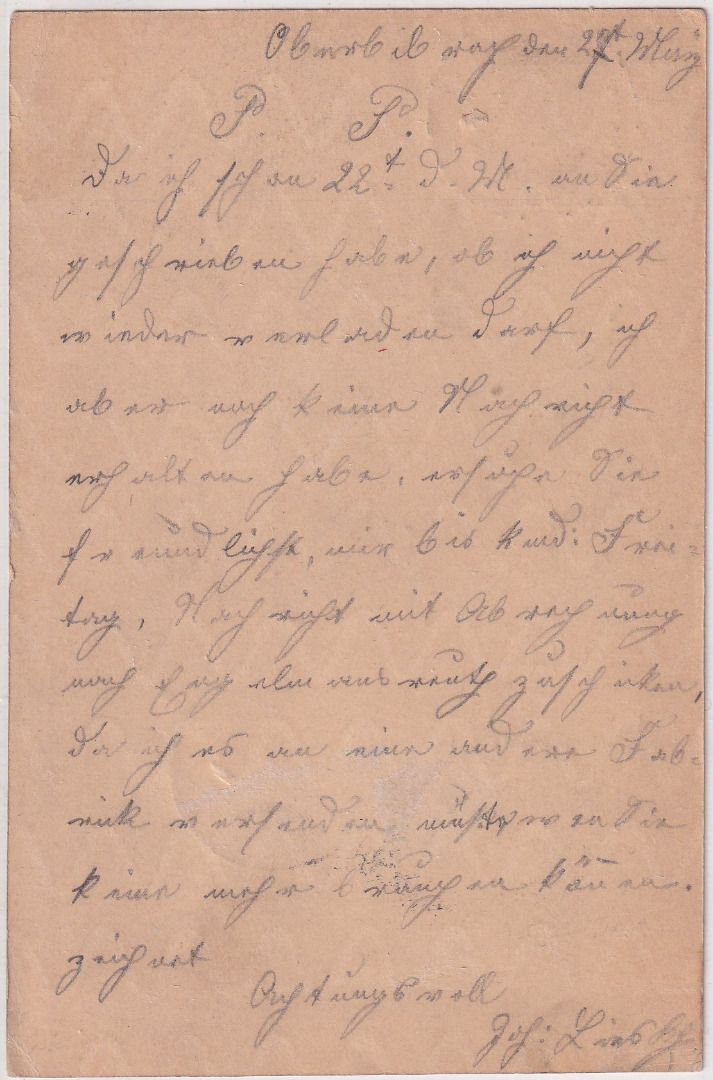 Oberbibrach den 27t. März
P. P.
Da ich schon 22t. d. M. an Sie
geschrieben habe, ob ich nicht
wieder verladen darf, ich
aber noch keine Nachricht
erhalten habe, ersuche Sie
freundlichst, mir bis kmd: Frei-
tag, Nachricht mit Abrechnung
nach Engelmansreuth zuschicken,
da ich es an eine andere Fab-
rick versenden müste wen Sie
keine mehr brauchen können.
zeichnet
Achtungsvoll
Joh: